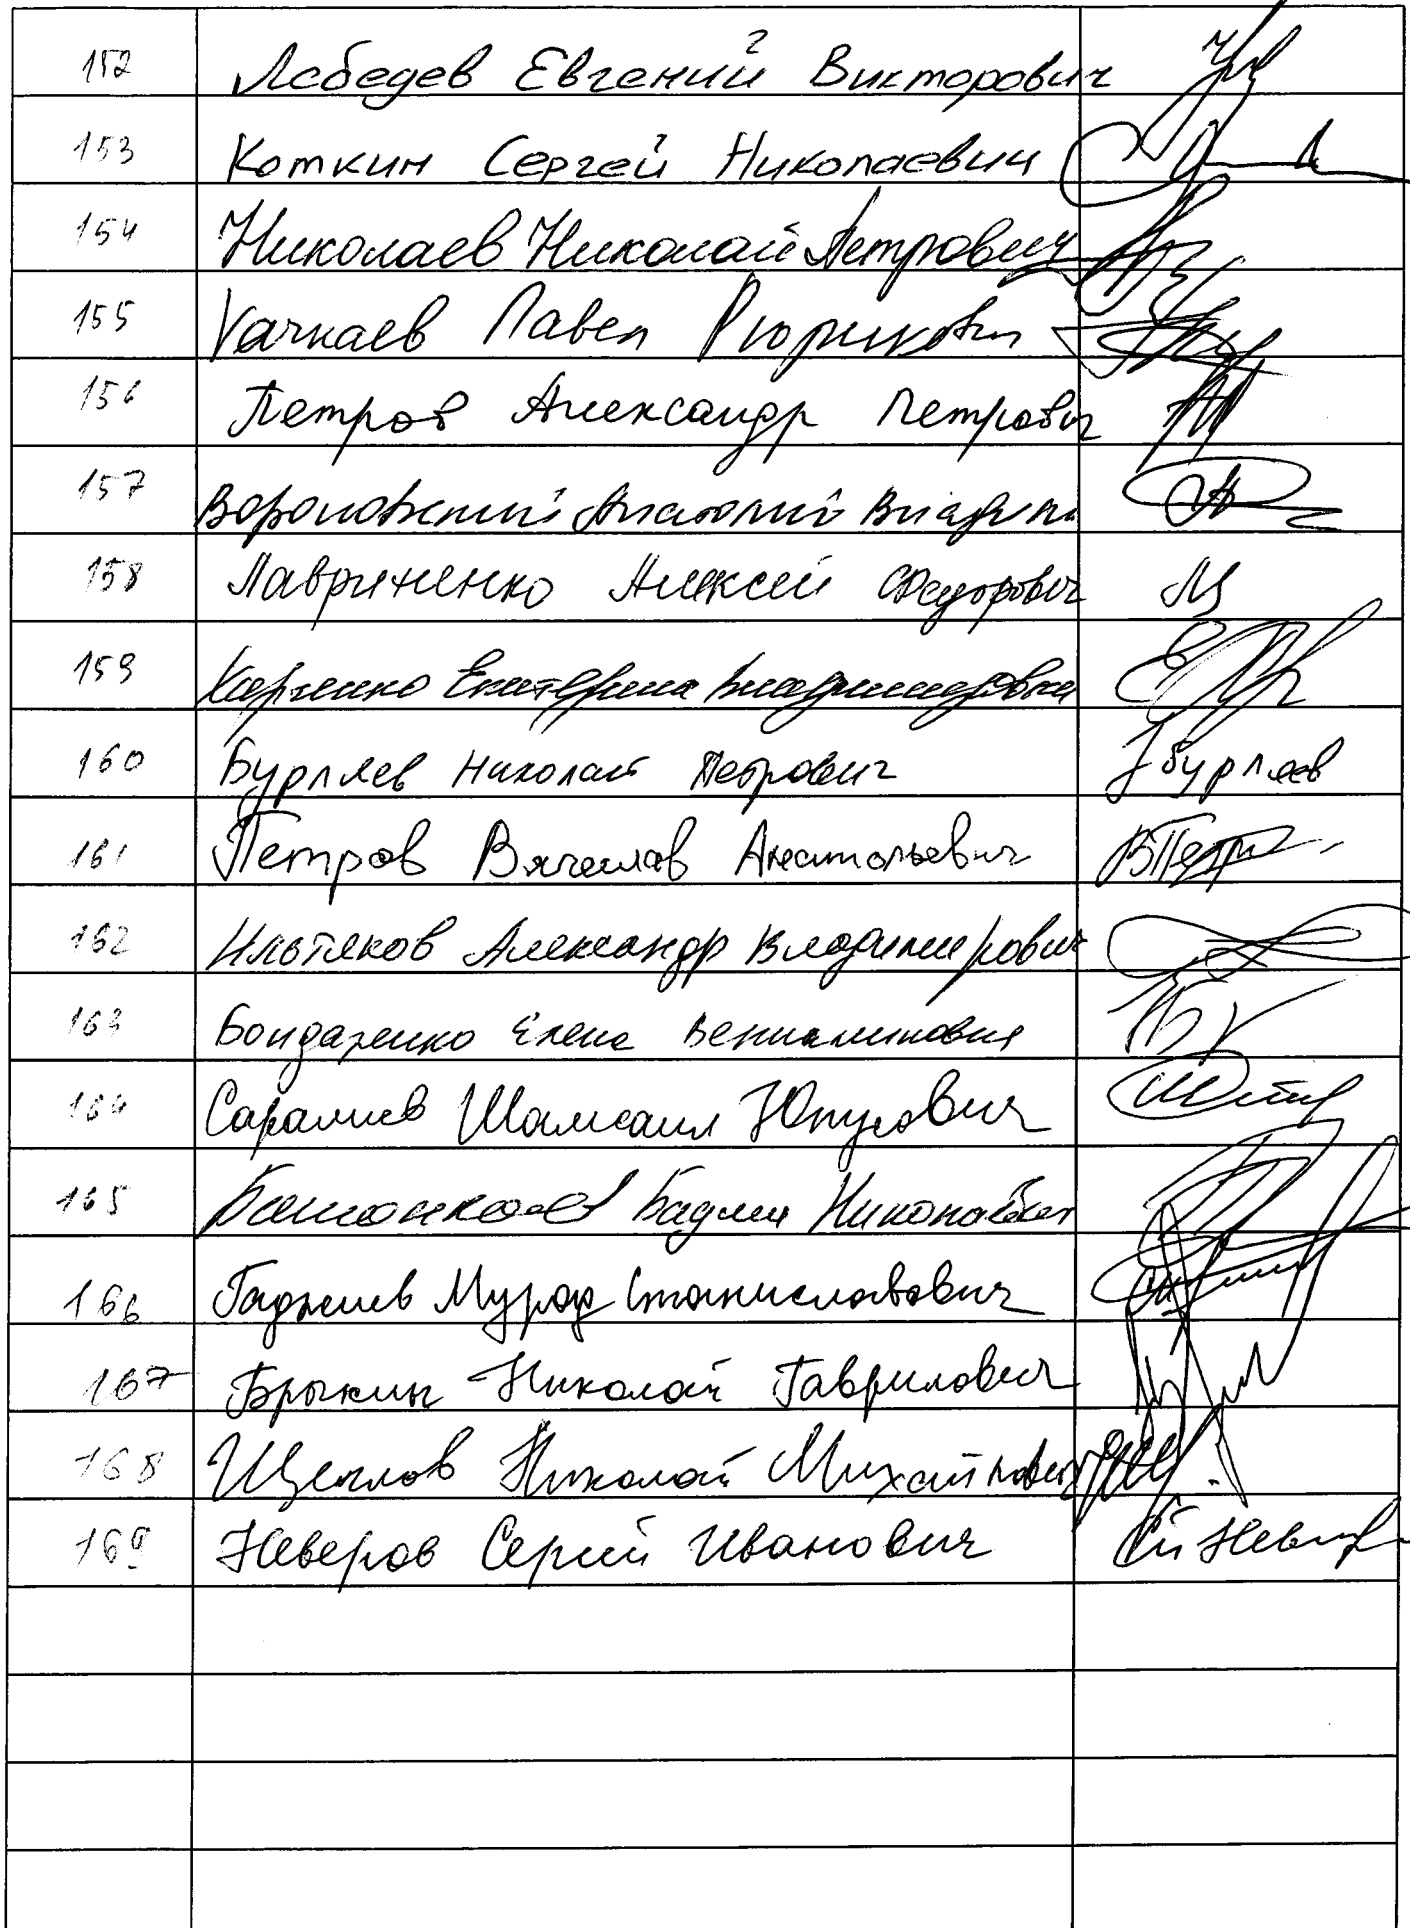 152 Лебедев Евгений Викторович
153 Коткин Сергей Николаевич
154 Николаев Николай Петрович
155 Качкаев Павел Рюрикович
156 Петров Александр Петрович
157 Вороновский Анатолий
158 Лавриненко Алексей Федорович
159 Харченко Екатерина Владимировна
160 Бурляев Николай Петрович Бурляев
161 Петров Вячеслав Анатольевич
162 Ильтяков Александр Владимирович
163 Бондаренко Елена Вениаминовна
164 Саралиев Шамсаил Юнусович
165 Башанкаев Бадма Николаевич
166 Гаджиев Мурад Станиславович
167 Брыкин Николай Гаврилович
168 Щеглов Николай Михайлович
169 Неверов Сергей Иванович